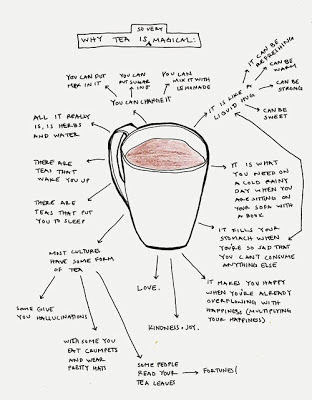 SO VERY
WHY TEA IS MAGICAL:
YOU CAN PUT
MILK IN IT
YOU
CAN
PUT SUGAR
IN IT
YOU CAN
MIX IT WITH
LEMONADE
YOU CAN CHANGE IT
IT CAN BE
REFRESHING
CAN BE
WARM
CAN BE
STRONG
CAN BE
SWEET
IT IS LIKE A
LIQUID HUG
ALL IT REALLY
IS, IS HERBS
AND WATER
THERE ARE
TEAS THAT
WAKE YOU UP
THERE ARE
TEAS THAT PUT
YOU TO SLEEP
MOST CULTURE
HAVE SOME FORM
OF TEA
SOME GIVE
YOU HALLUCINATIONS
WITH SOME YOU
EAT CRUMPETS
AND WEAR
PRETTY HATS
SOME PEOPLE
READ YOUR
TEA LEAVES
FORTUNES!
LOVE.
KINDNESS + JOY.
IT IS WHAT
YOU NEED ON
A COLD RAINY
DAY WHEN YOU
ARE SITTING ON
YOUR SOFA WITH
A BOOK
IT FILLS YOUR
STOMACH WHEN
YOU'RE SO SAD THAT
YOU CAN'T CONSUME
ANYTHING ELSE
IT MAKES YOU HAPPY
WHEN YOU'RE ALREADY
OVERFLOWING WITH
HAPPINESS (MULTIPLYING
YOUR HAPPINESS).